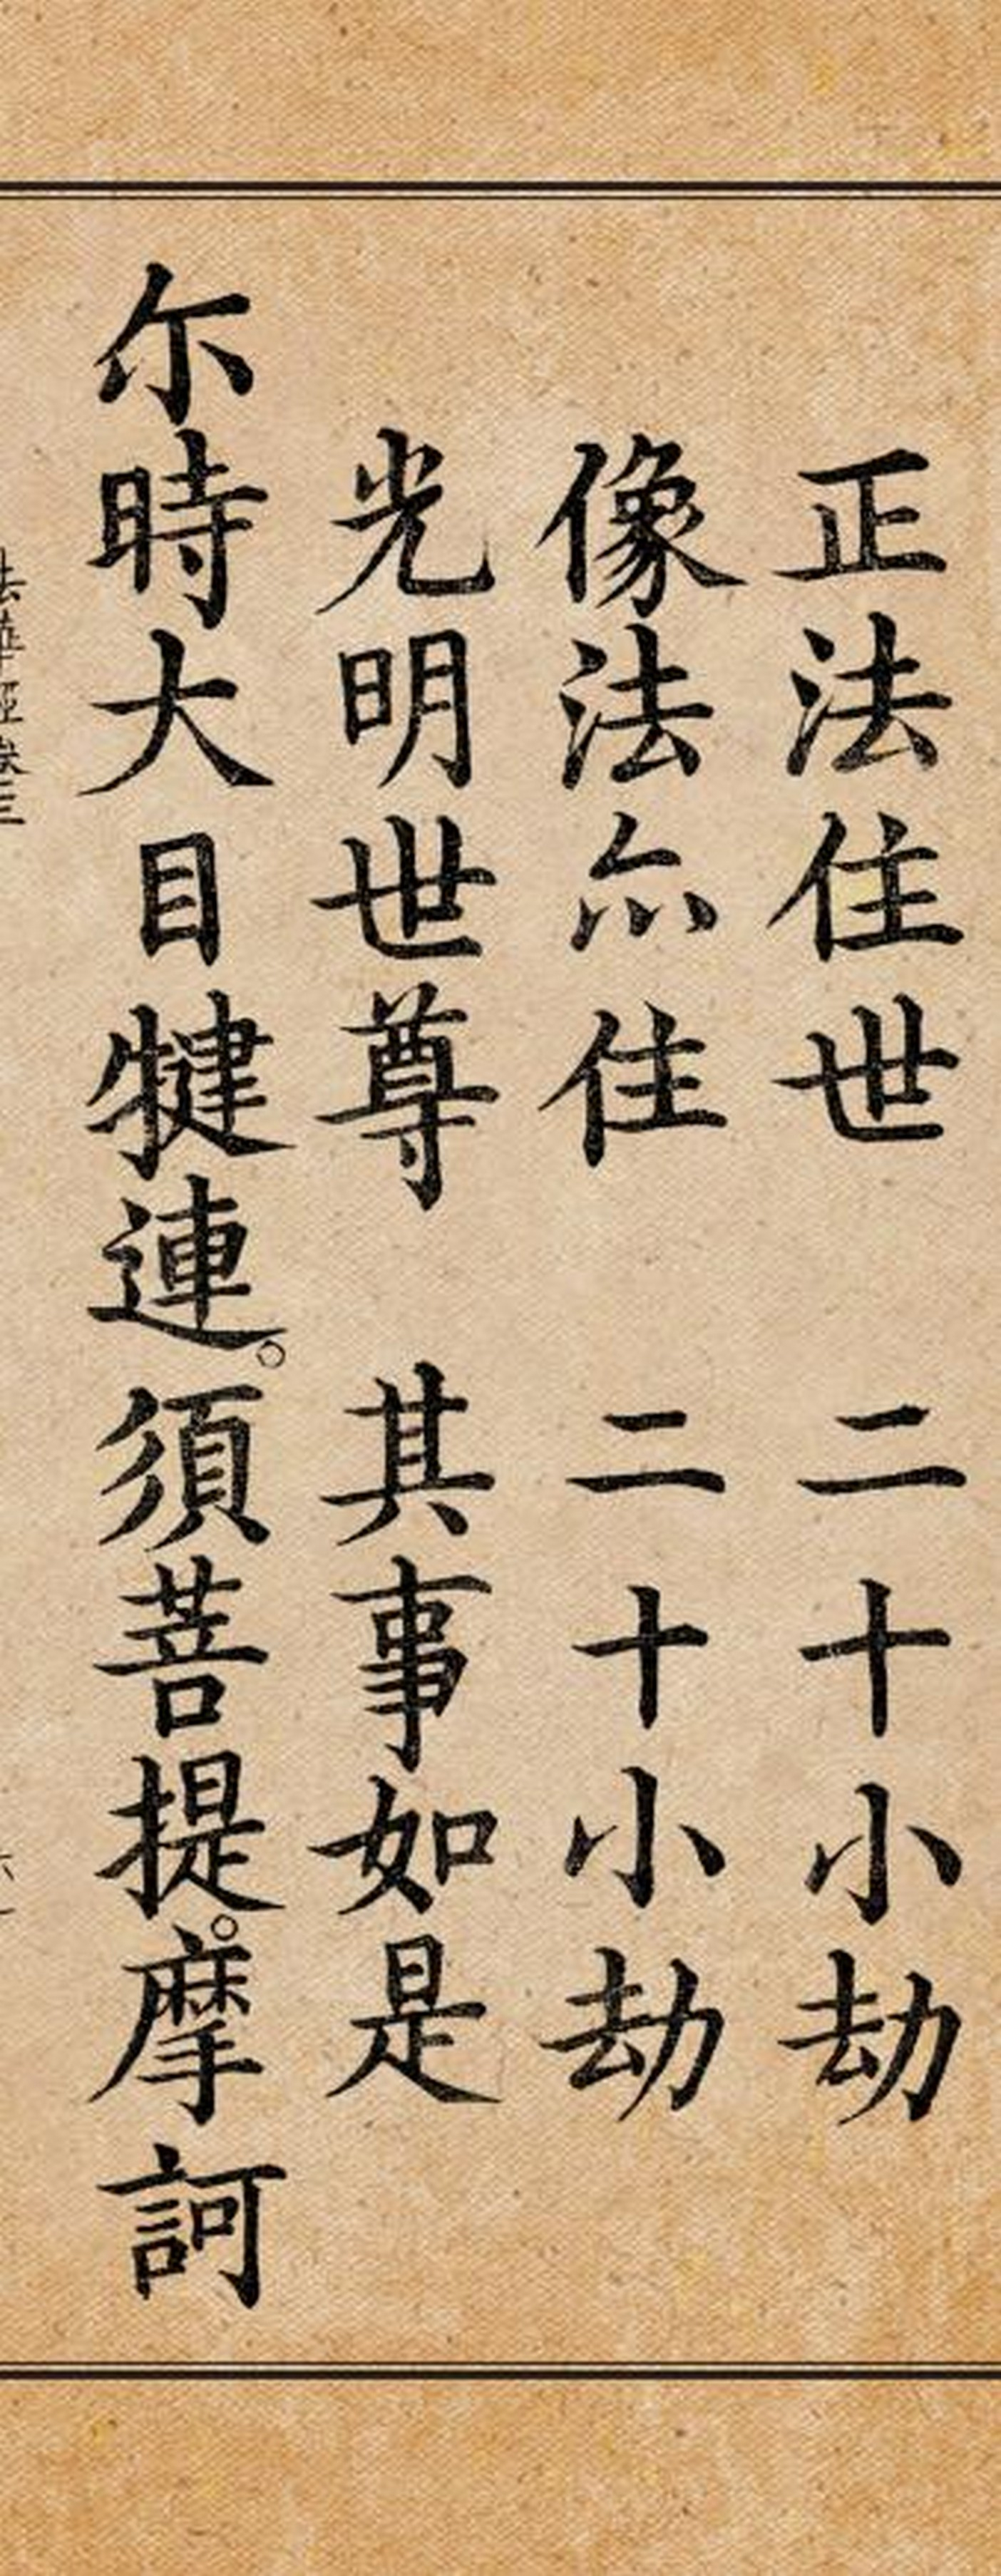 正法住世　二十小劫
像法亦住　二十小劫
光明世尊　其事如是
尒時大目犍連。須菩提。摩訶
法華經卷三